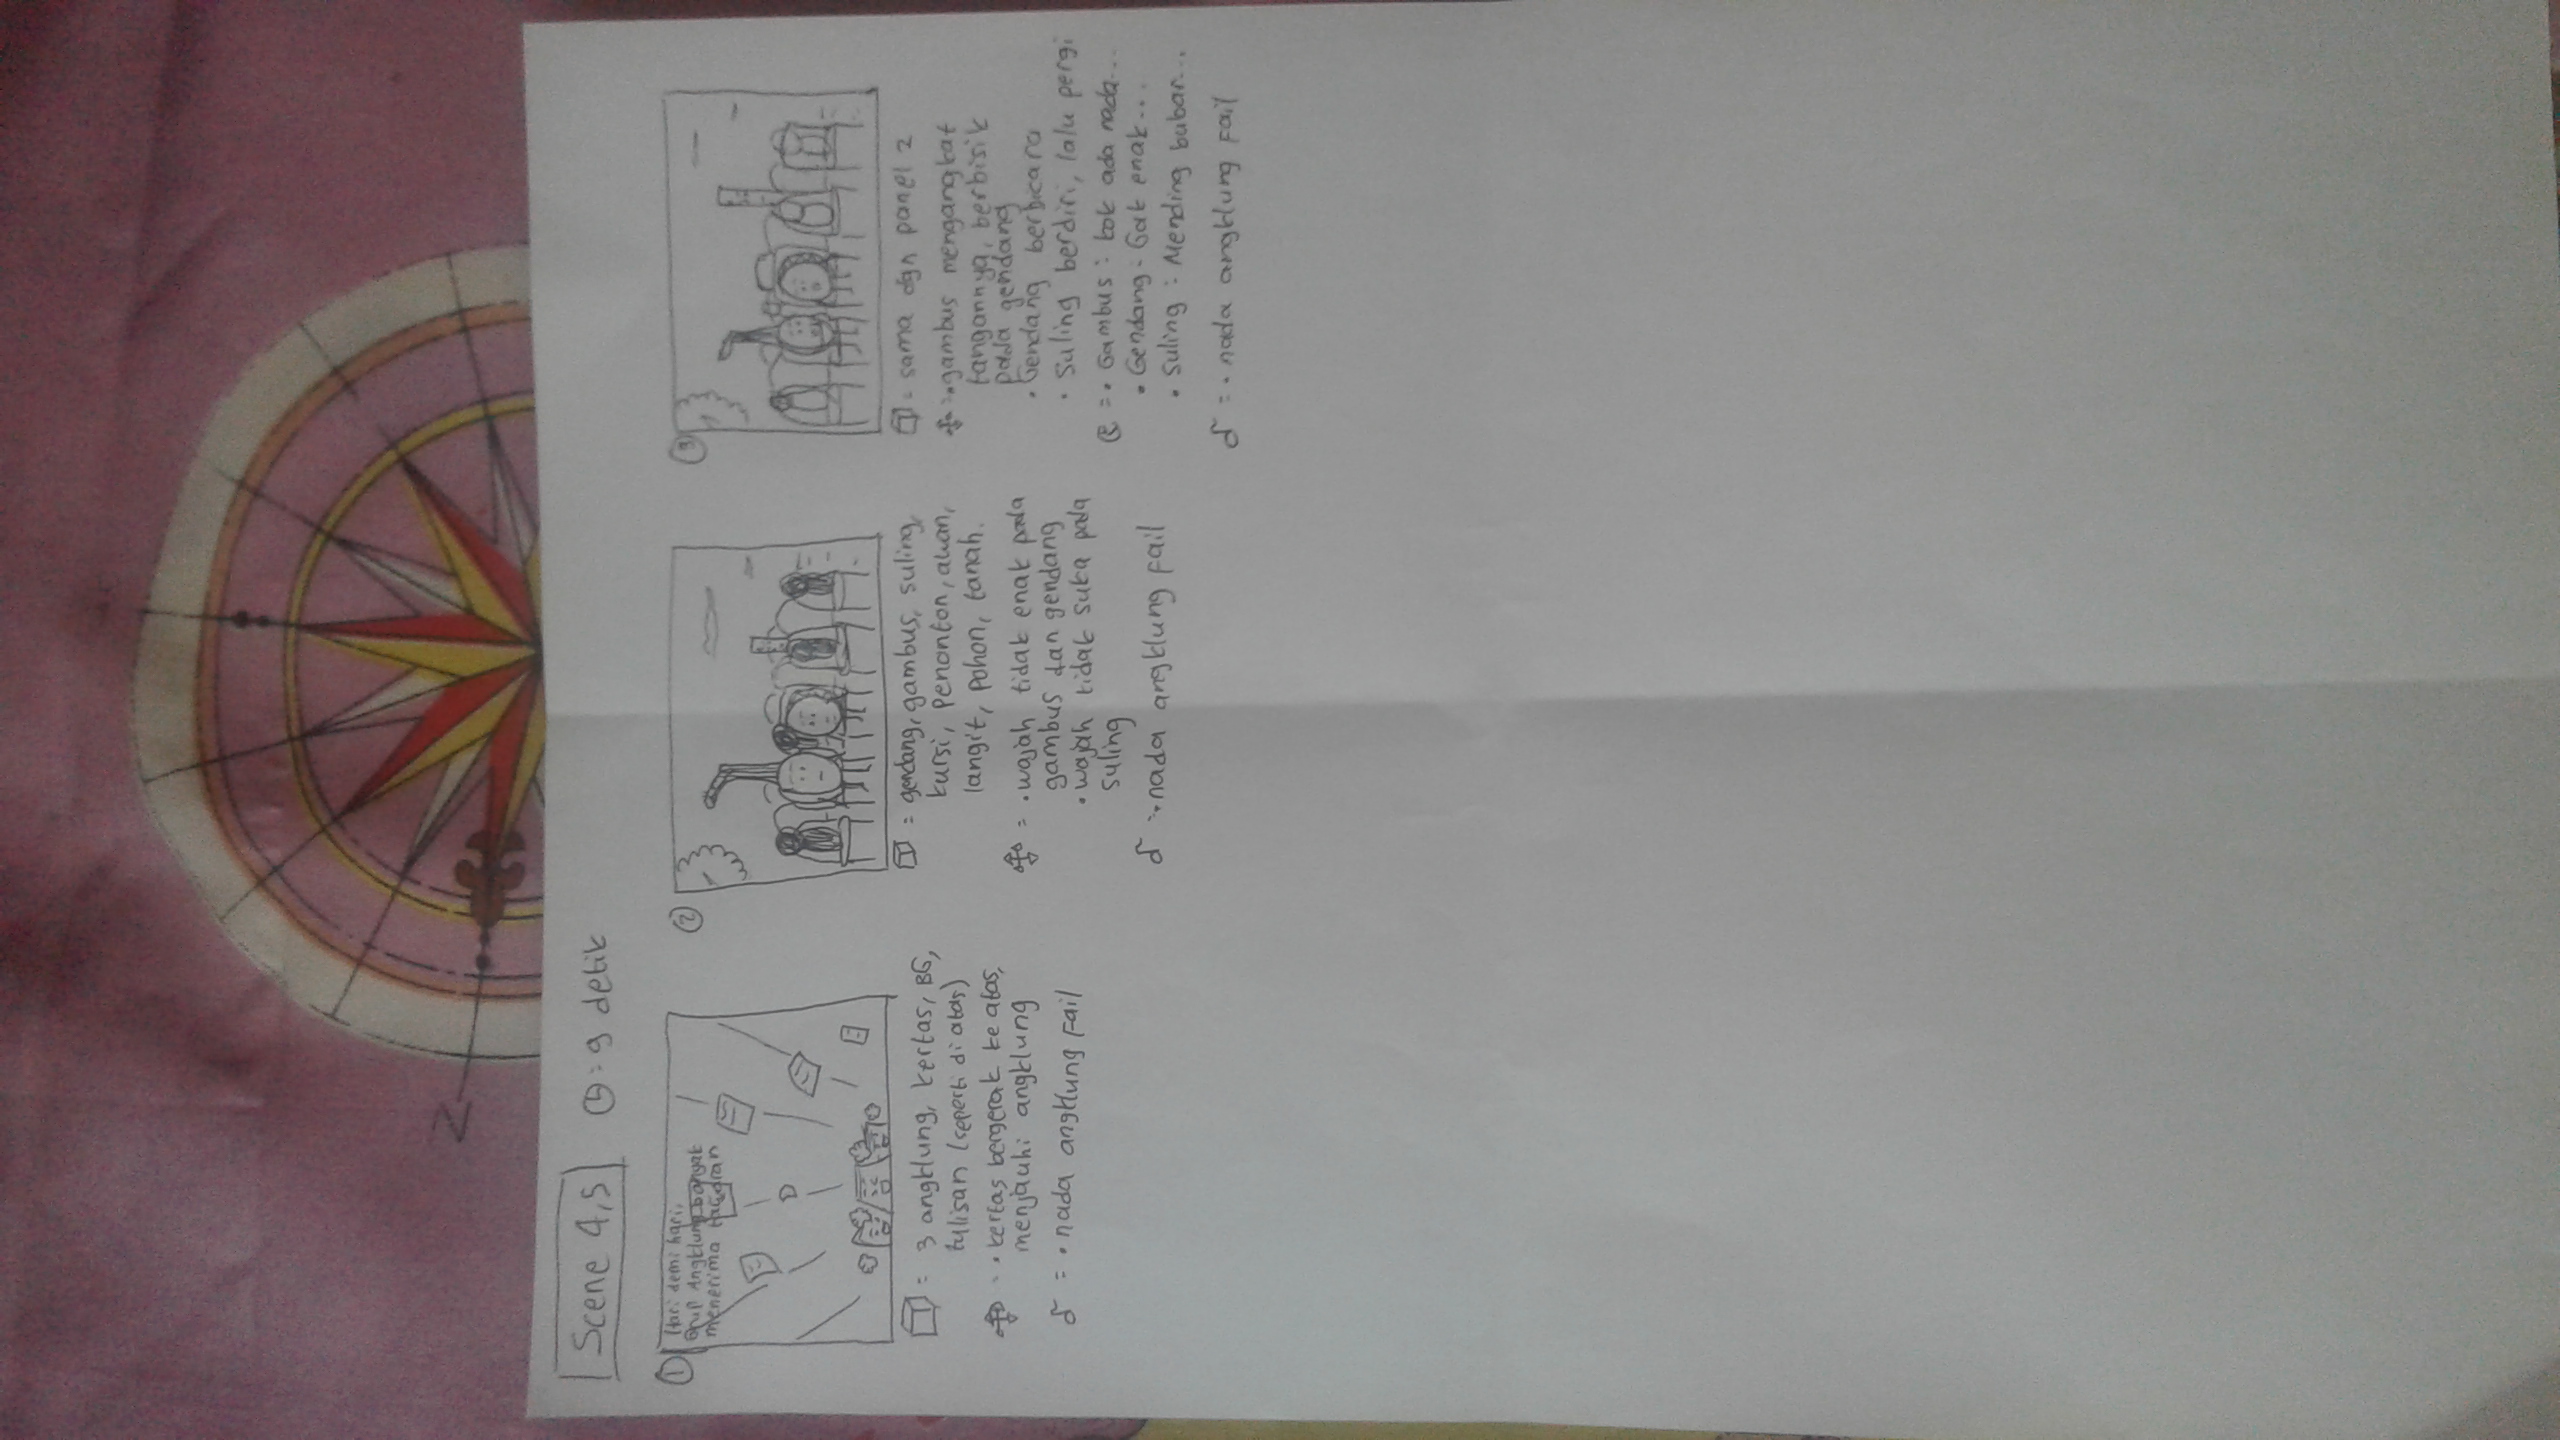 N
Scene 4,5
: 9 detik
1
Hari demi hari,
Grup Angklung banyak
menerima tawaran
= 3 angklung, kertas, BG,
tulisan (seperti di atas)
= • kertas bergerak ke atas,
menjauhi angklung
= • nada angklung Fail
2
= gendang, gambus, suling,
kursi, penonton, awan,
langit, pohon, tanah.
= • wajah tidak enak pada
gambus dan gendang
• wajah tidak suka pada
suling
= • nada angklung fail
3
= sama dgn panel 2
= • gambus mengangkat
tangannya, berbisik
pada gendang
• Gendang berbicara
• Suling berdiri, lalu pergi
= • Gambus : kok ada nada...
• Gendang : Gak enak...
• Suling : Mending bubar...
= • nada angklung Fail